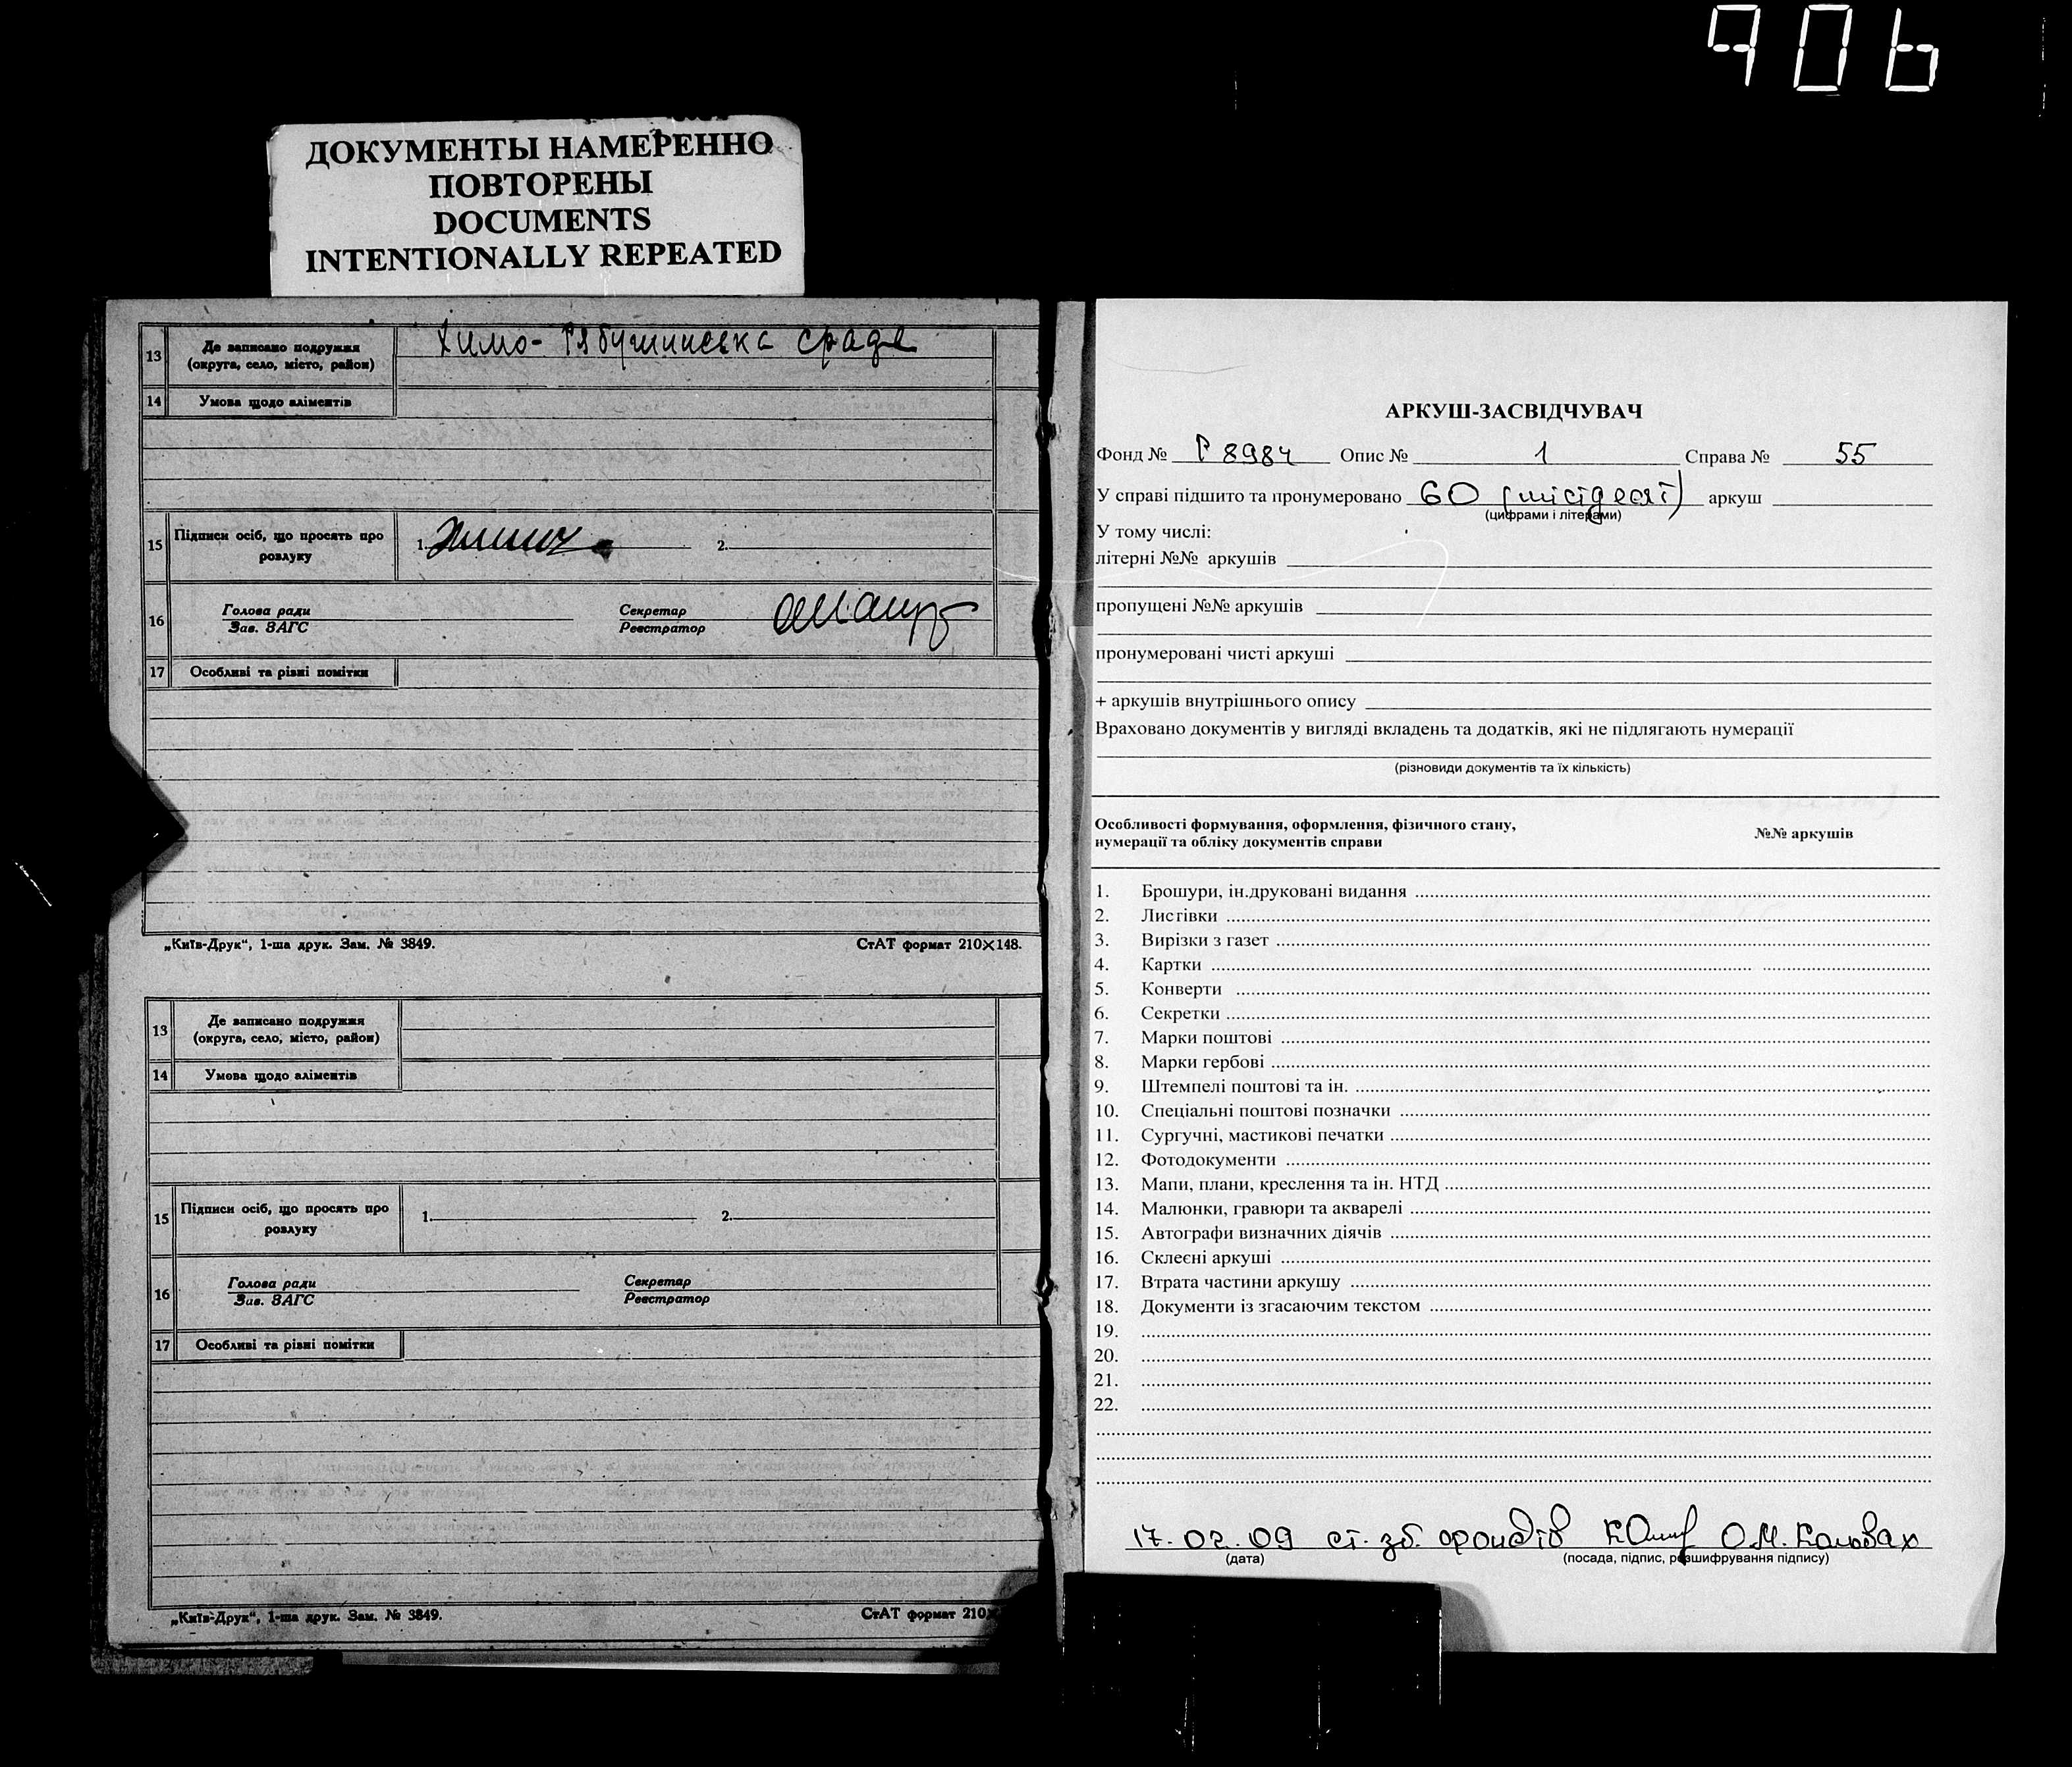 906
ДОКУМЕНТЫ НАМЕРЕННО
ПОВТОРЕНЫ
DOCUMENTS
INTENTIONALLY REPEATED
13 Де записано подружжя
(округа, село, місто, район)
14 Умова щодо аліментів
15 Підписи осіб, що просять про
розлуку
1. 2.
16 Голова ради
Зав. ЗАГС
Секретар
Реєстратор
17 Особливі та різні помітки
„Київ-Друк“, 1-ша друк. Зам. № 3849. СтАТ формат 210×148.
13 Де записано подружжя
(округа, село, місто, район)
14 Умова щодо аліментів
15 Підписи осіб, що просять про
розлуку
1. 2.
16 Голова ради
Зав. ЗАГС
Секретар
Реєстратор
17 Особливі та різні помітки
„Київ-Друк“, 1-ша друк. Зам. № 3849. СтАТ формат 210×
АРКУШ-ЗАСВІДЧУВАЧ
Фонд № Р 8984 Опис № 1 Справа № 55
У справі підшито та пронумеровано 60 (шістдесят) аркуш
(цифрами і літерами)
У тому числі:
літерні №№ аркушів
пропущені №№ аркушів
пронумеровані чисті аркуші
+ аркушів внутрішнього опису
Враховано документів у вигляді вкладень та додатків, які не підлягають нумерації
(різновиди документів та їх кількість)
Особливості формування, оформлення, фізичного стану,
нумерації та обліку документів справи
№№ аркушів
1. Брошури, ін.друковані видання
2. Листівки
3. Вирізки з газет
4. Картки
5. Конверти
6. Секретки
7. Марки поштові
8. Марки гербові
9. Штемпелі поштові та ін.
10. Спеціальні поштові позначки
11. Сургучні, мастикові печатки
12. Фотодокументи
13. Мапи, плани, креслення та ін. НТД
14. Малюнки, гравюри та акварелі
15. Автографи визначних діячів
16. Склеєні аркуші
17. Втрата частини аркушу
18. Документи із згасаючим текстом
19.
20.
21.
22.
17.02.09 ст. зб. фондів О.М.
(дата) (посада, підпис, розшифрування підпису)